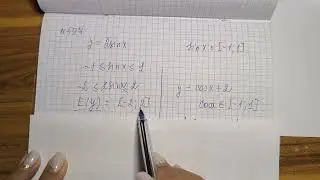 y = 2sinx
sinx ∈ [-1; 1]
-1 ≤ sinx ≤ 1
-2 ≤ 2sinx ≤ 2
E(y) = [-2; 2]
y = cosx + 2
cosx ∈ [-1; 1]